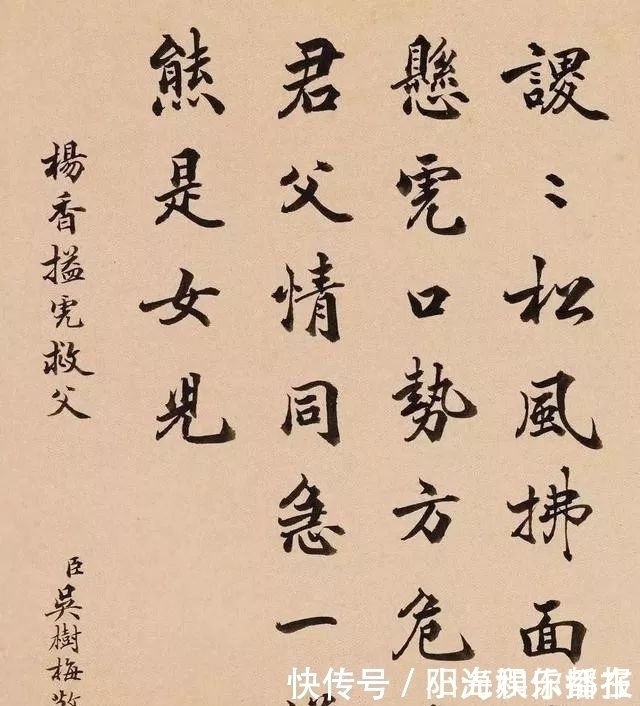 謖〻松風拂面
懸虎口勢方危
君父情同急一
熊是女兒
楊香搤虎救父
臣吳樹梅敬
快传号／阳海娱乐播报